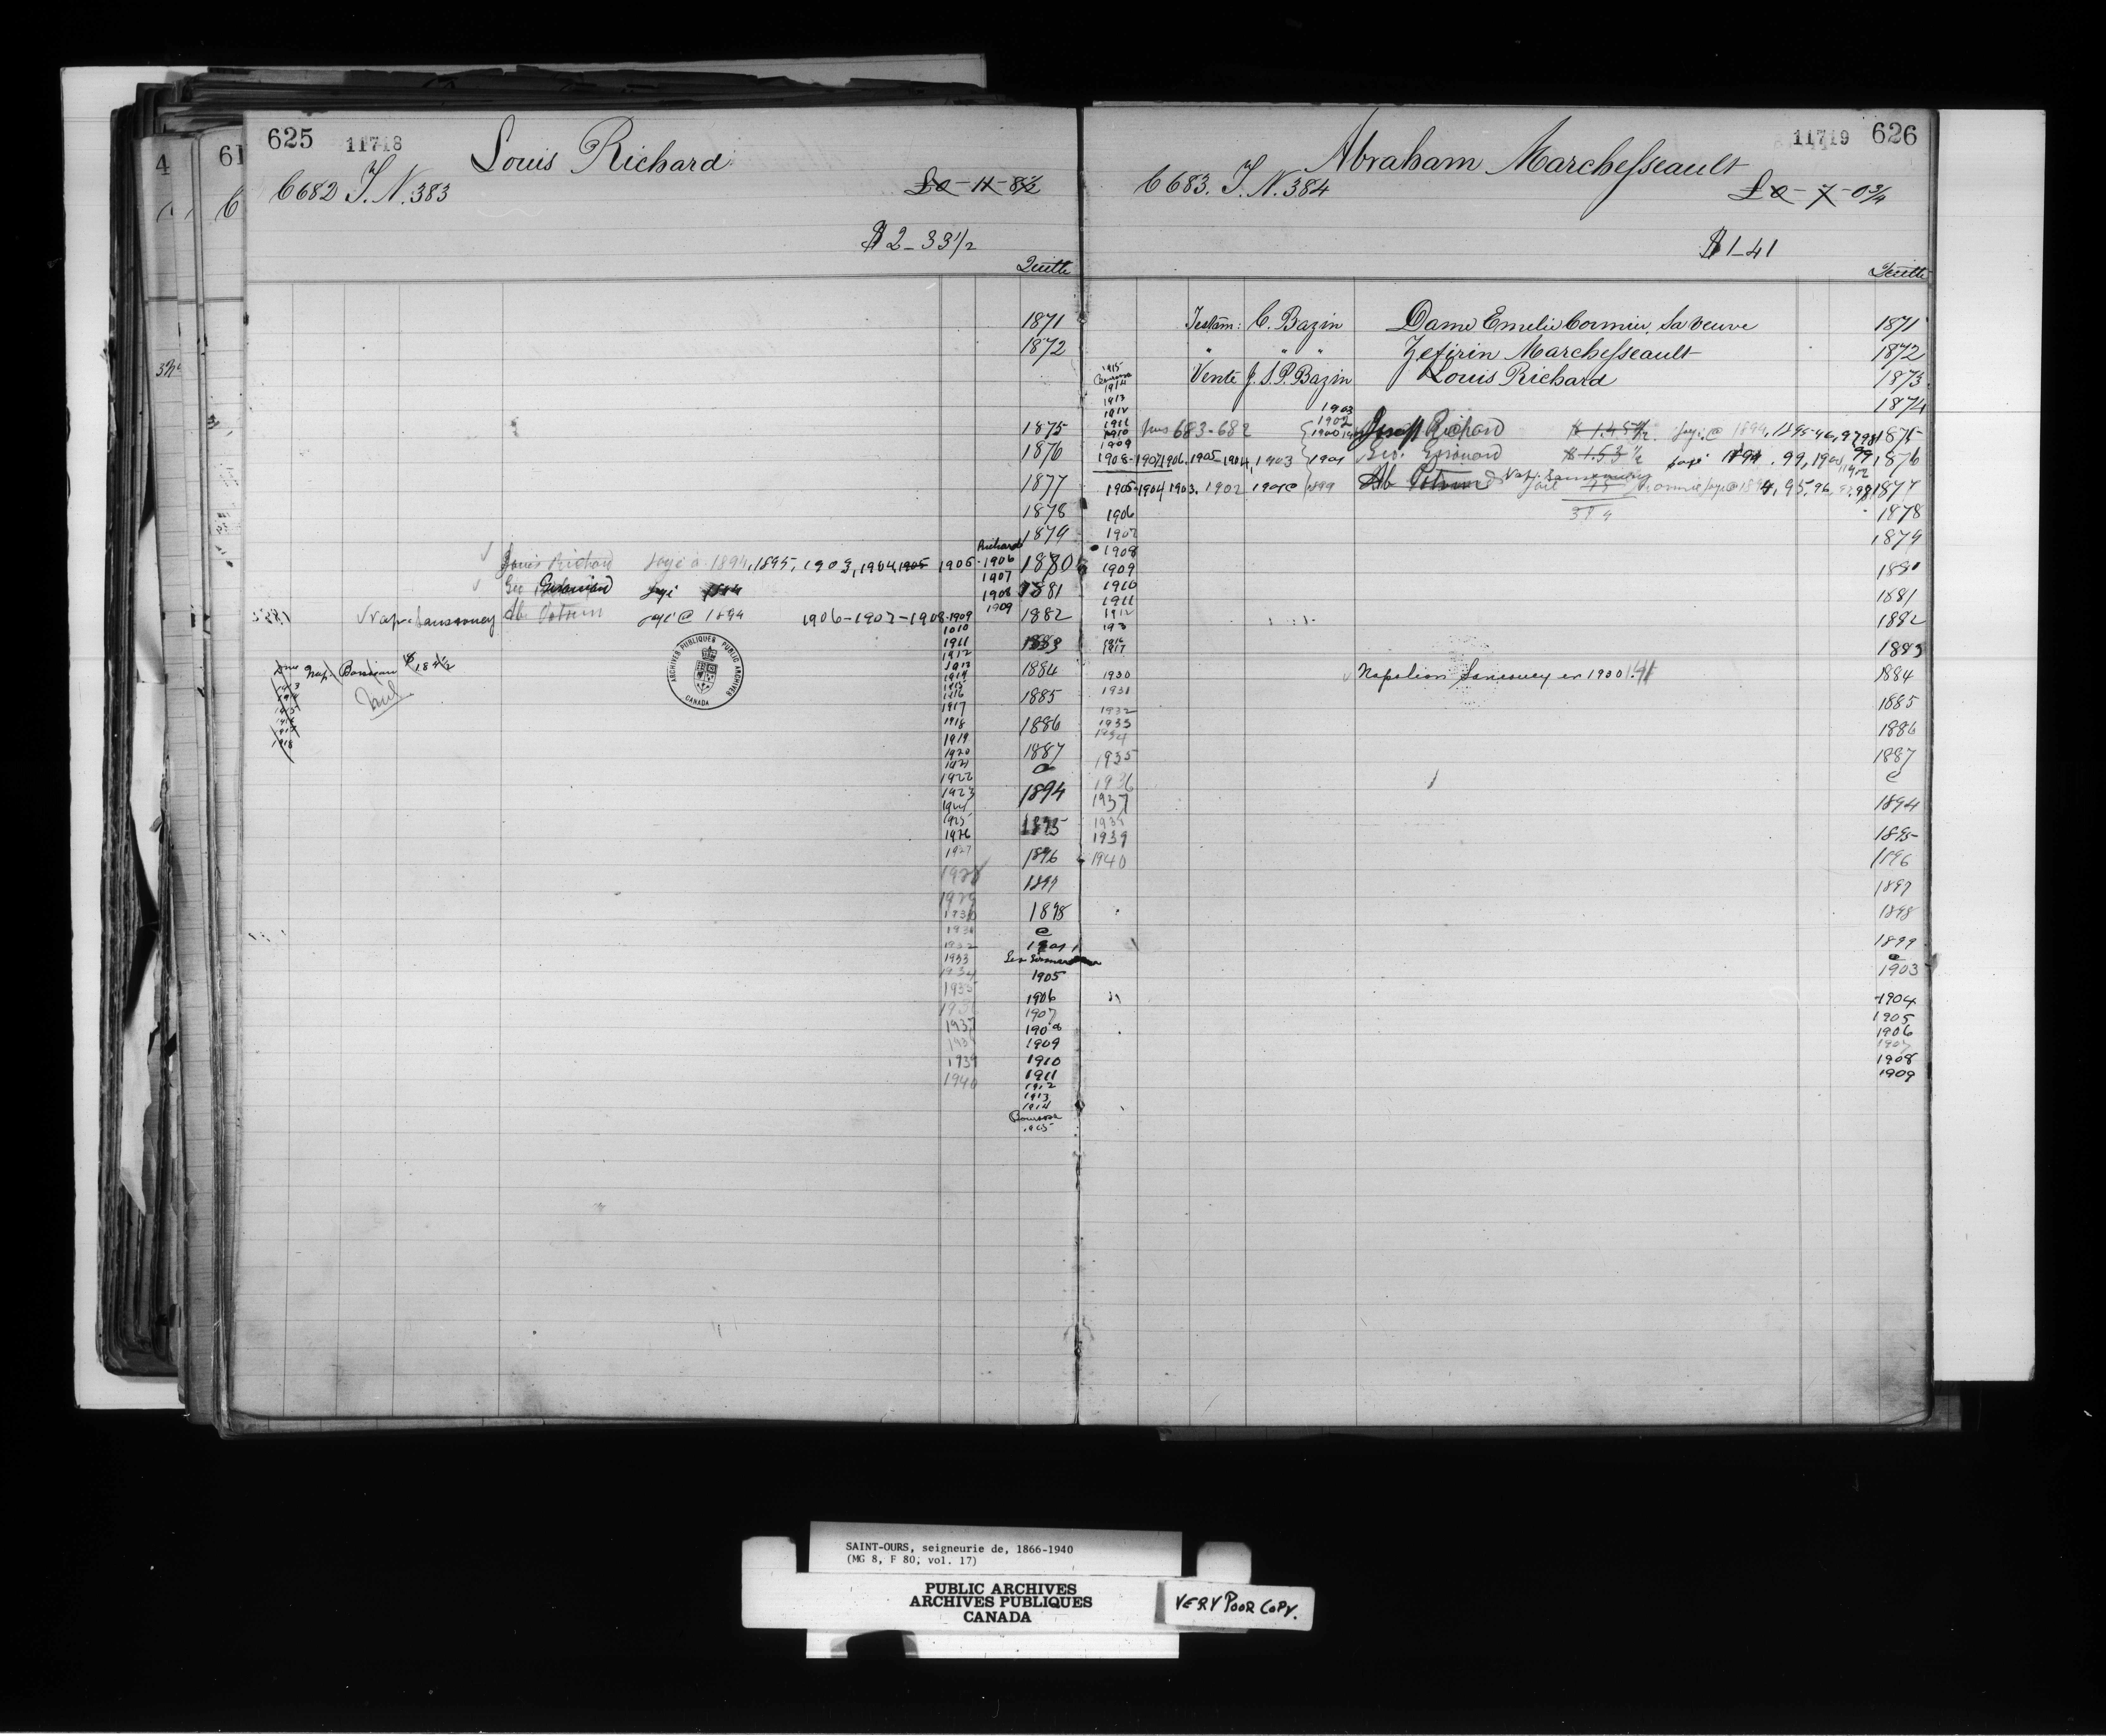 625 11718 Louis Richard
C 682 T. N. 383 £0-11-8½
$2-33½
Quitte
1871
1872
1875
1876
1877
1878
1879
Richard
Louis Richard payé à 1894, 1895, 1903, 1904, 1905 1905-1906 1880
1907
Geo payé 1908 1881
1909
Nap. Sansoucy payé @ 1894 1906-1907-1908-1909 1882
1910
1911 1883
1912
1913 1884
Nap.
1913
1914
1915
1918
1914
1915
1916 1885
1917
1918 1886
1919
1920 1887
1921
1922
1923 1894
1924
1925 1895
1926
1927 1896
1928 1897
1929
1930 1898
1931
1932 1901
1933
1934 1905
1935
1936 1906
1907
1937 1908
1938 1909
1939 1910
1940 1911
1912
1913
1914
1915
ARCHIVES PUBLIQUES PUBLIC ARCHIVES
CANADA
11719 626
Abraham Marchesseault
C 683. T. N. 384 £0-7-0¾
$1-41
Quitte
Testam: C. Bazin Dame Emelie Cormier, sa veuve 1871
" " " Zefirin Marchesseault 1872
Vente J. S. P. Bazin Louis Richard 1873
1874
1915
1914
1913
1912
1911
1910
1909
1903
1902
Nos 683-682 1900 Joseph Richard payé @ 1894, 1895 96, 97 98 1875
1908-1907 1906. 1905-1904, 1903 1901 Geo. $1.53½ payé 1894. 99, 1901 1876
1905-1904 1903. 1902 1901 @ 1899 Nap. Sansoucy payé @ 1894, 95, 96, 97, 98 1877
1906 1878
1907 1879
1908
1909 1880
1910
1911 1881
1912 1882
1913
1916
1917 1883
1930 Napoleon Sansoucy en 1930 1.41 1884
1931 1885
1932
1933 1886
1934
1935 1887
1936
1937 1894
1938
1939 1895
1940 1896
1897
1898
1899
1903
1904
1905
1906
1907
1908
1909
SAINT-OURS, seigneurie de, 1866-1940
(MG 8, F 80, vol. 17)
PUBLIC ARCHIVES
ARCHIVES PUBLIQUES
CANADA
VERY POOR COPY.